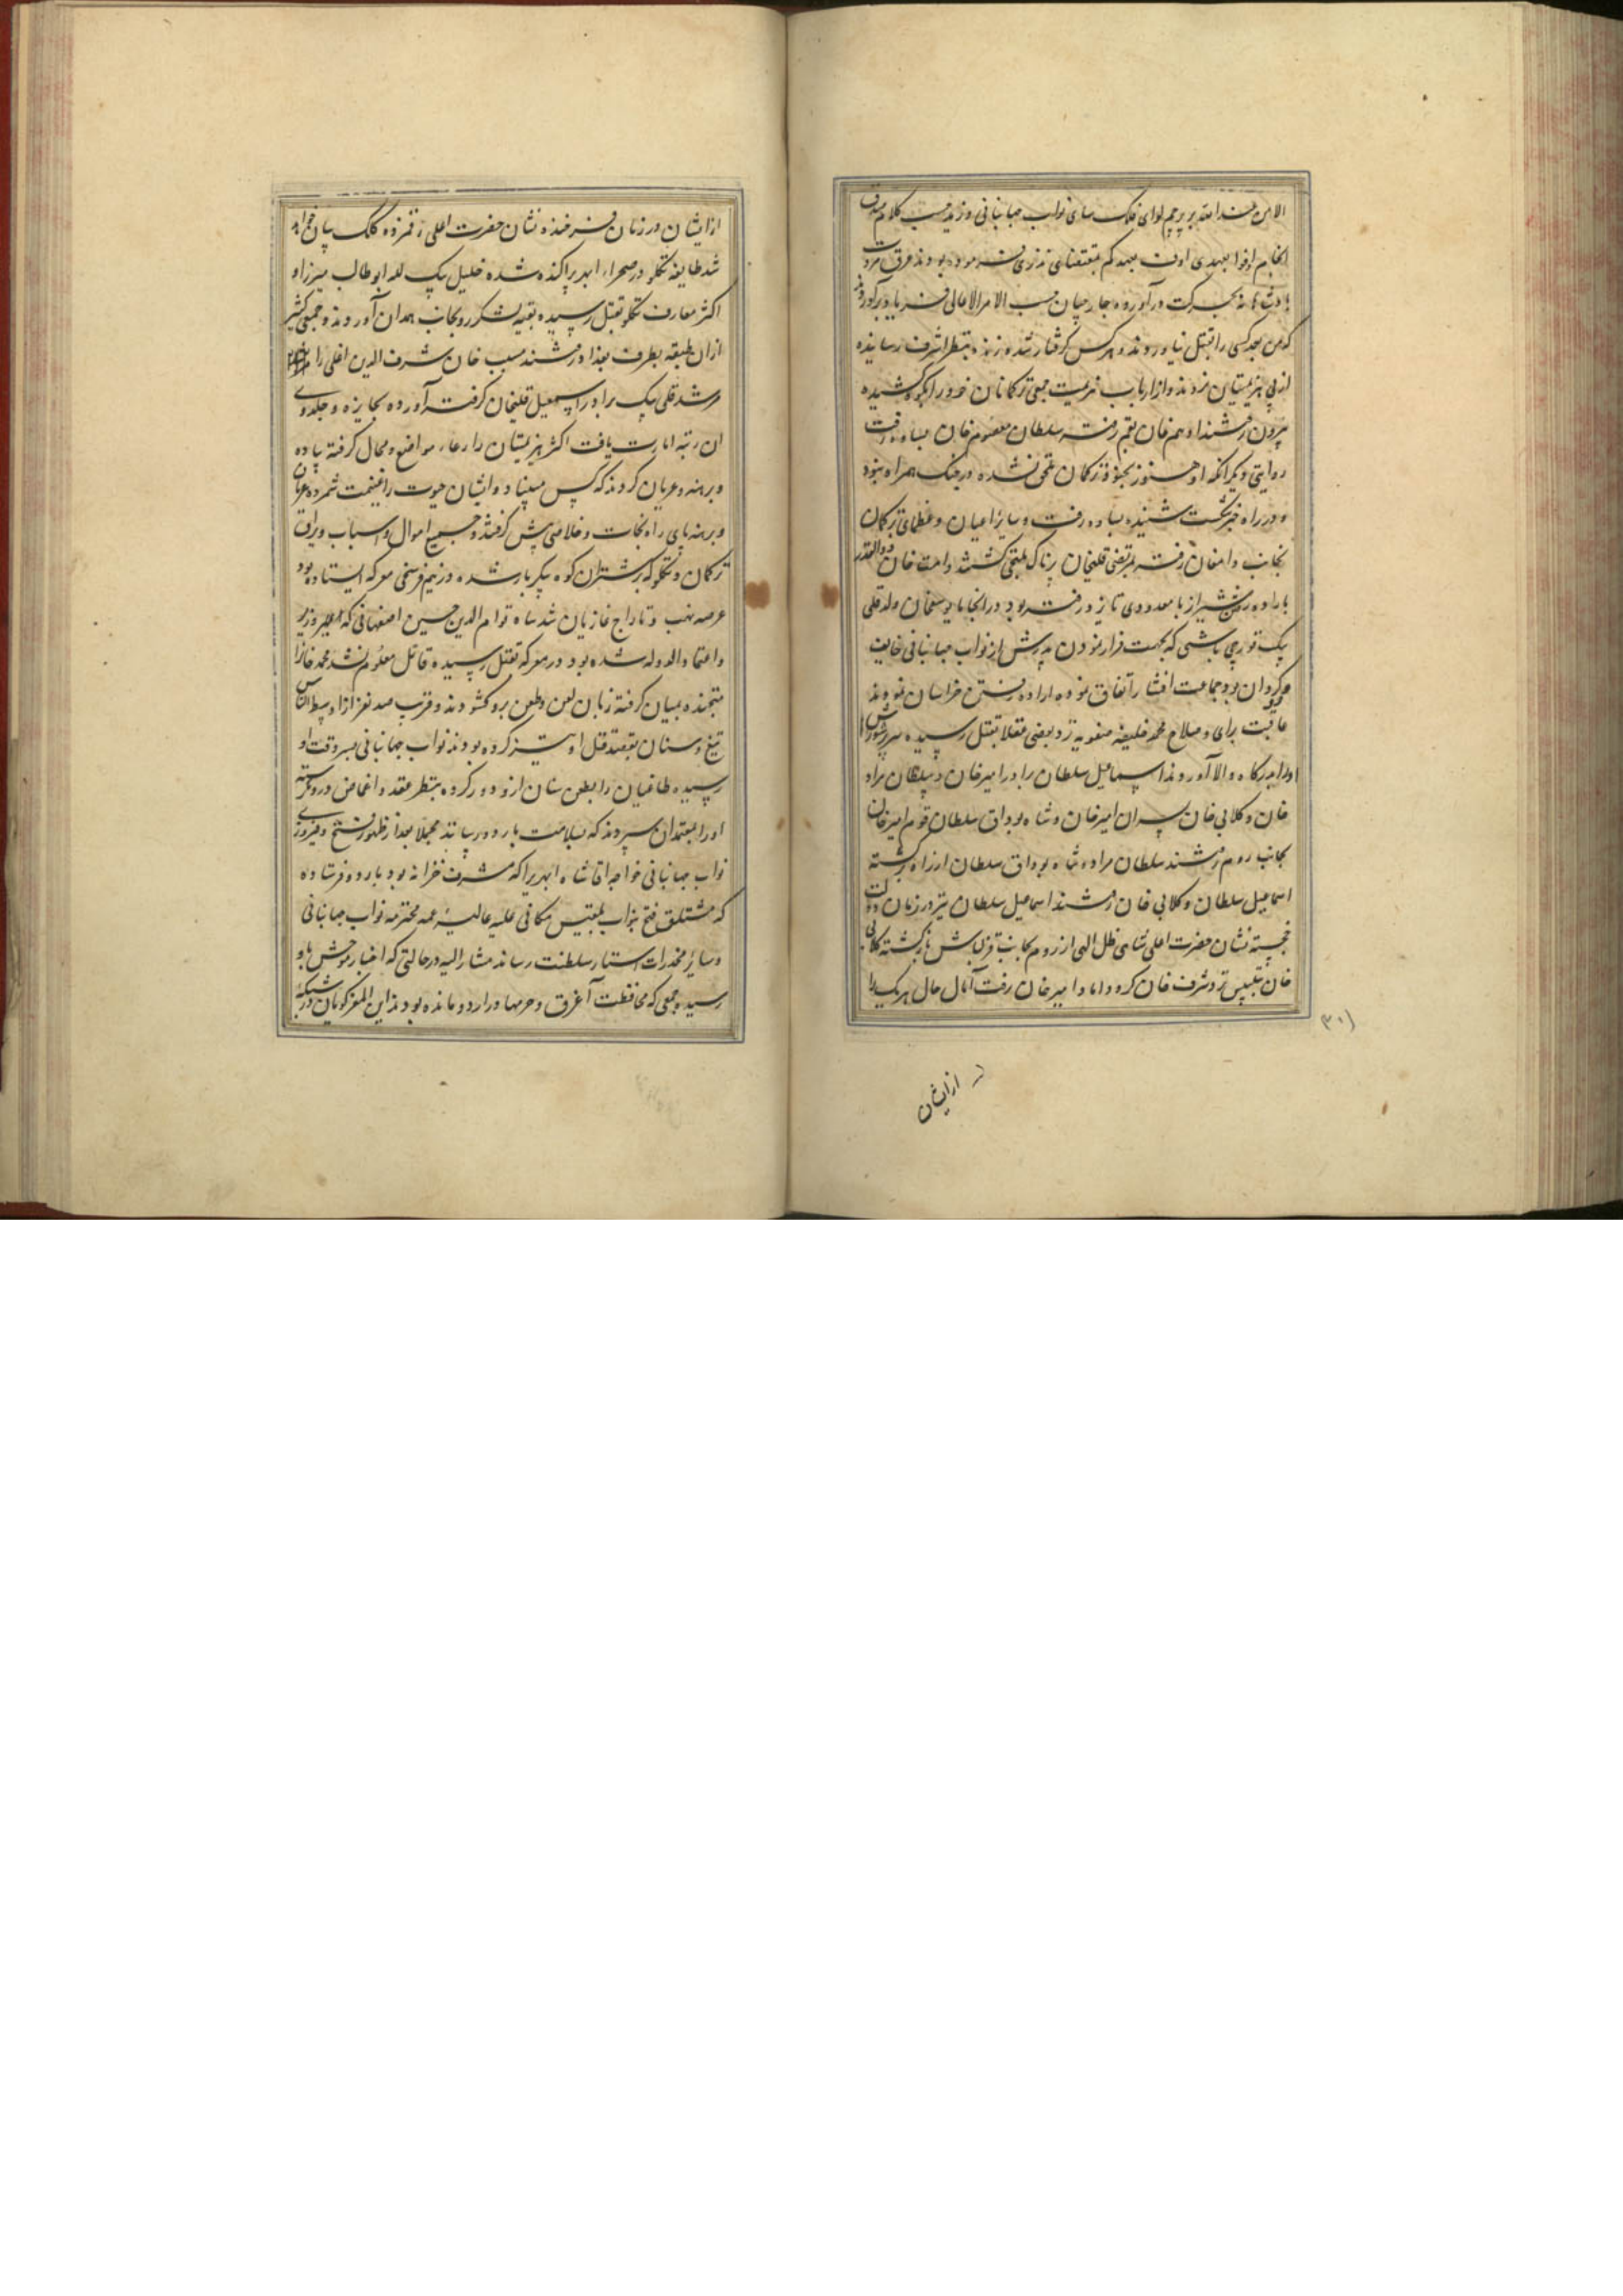 الامن شدامته بر پرچم لوای فلک سای نواب جهانبانی وزید حسب کلام صدق
انجام اوفوا بعهدی اوف بعهدکم بمقتضای نذری که فرموده بودند عرق مروت
پادشاهانه بحرکت درآورده جارچیان حسب الامر الاعالی فریاد برآوردند
که من بعد کسی را بقتل نیاورند و هر کس گرفتار شده زنده بنظر اشرف رسانیده
از پی هزیمتیان نروند و از ارباب هزیمت جمعی ترکمانان خود را بکوه کشیده
بیرون رفتند ادهم خان بقم رفته سلطان معصوم خان بساوه رفت
روایتی دیگر آنکه او هنوز بجنود ترکمان ملحق نشده در جنگ همراه نبود
و در راه خبر شکست شنیده بساوه رفت و سایر اعیان و عظمای ترکمان
بجانب دامغان رفته بمرتضی قلیخان پرناک ملتجی گشتند و امت خان ذوالقدر
باراده رفتن شیراز با معدودی تا یزد رفته بود در انجا با یوسفخان ولد قلی
بیک قورچی باشی که بجهت فرار نمودن پدرش از نواب جهانبانی خایف
و گردان بود و جماعت افشار اتفاق نموده اراده رفتن خراسان نمودند
عاقبت برای و صلاح محمد خلیفه صفویه یزد و بعضی عقلا بقتل رسیده سر پرشورش
اورا بدرگاه والا آوردند اسماعیل سلطان برادر امیرخان و سلطان مراد
خان و کلابی خان پسران امیرخان و شاه بوداق سلطان قوم امیرخان
بجانب روم رفتند سلطان مراد و شاه بوداق سلطان از راه برگشته
اسماعیل سلطان و کلابی خان رفتند اسماعیل سلطان نیز در زمان دولت
خجسته نشان حضرت اعلی شاهی ظل الهی از روم بجانب قزلباش بازگشته کلابی
خان بتبلیس نزد شرف خان کرد داماد امیرخان رفت آمال حال هر یک را
۳۰۱
از ایشان
از ایشان در زمان فرخنده نشان حضرت اعلی رقمزده کلک بیان خواهد
شد طایفه تکلو در صحراء ابهر پراکنده شده خلیل بیک لله ابوطالب میرزا و
اکثر معارف تکلو بقتل رسیده بقیه لشکر رو بجانب همدان آوردند و جمعی کثیر
ازان طبقه بطرف بغداد رفتند مسیب خان شرف الدین اغلی را
مرشد قلی بیک برادر اسمعیل قلیخان گرفته آورده بجایزه و جلدوی
آن رتبه امارت یافت اکثر هزیمتیان را رعاء مواضع و محال گرفته پیاده
و برهنه و عریان کردند که کس میفتاد و ایشان حیوت را غنیمت شمرده عریان
و برهنه پای راه نجات و خلاصی پیش گرفتند و جمیع اموال و اسباب و یراق
ترکمان و تکلو که بر شتران کوه پیکر بار شده در نیم فرسخی معرکه ایستاده بود
عرصه نهب و تاراج غازیان شد شاه قوام الدین حسین اصفهانی که وزیر
و اعتماد الدوله شده بود در معرکه بقتل رسیده قاتل معلوم نشد محمد خانرا
متجنده بمیان گرفته زبان لعن و طعن برو گشودند و قریب صد نفر از اوسط الناس
تیغ و سنان بقصد قتل او تیز کرده بودند نواب جهانبانی بسر وقت او
رسیده طاغیان را بطعن سنان ازو دور کرده بنظر عقد و اغماض درو نگریسته
اورا بمعتمدان سپردند که بسلامت باردو رسانند مجملا بعد از ظهور فتح و فیروزی
نواب جهانبانی خواجه آقا شاه ابهریرا که مشرف خزانه بود باردو فرستاده
که مشتلق فتح بنواب بلقیس مکانی علیه عالیه عمه محترمه نواب جهانبانی
و سایر مخدرات استار سلطنت رساند مشار الیه در حالتی که اخبار موحش باو
رسیده جمعی که محافظت آغرق و حرمها در اردو مانده بودند این المفر گویان در شبکه